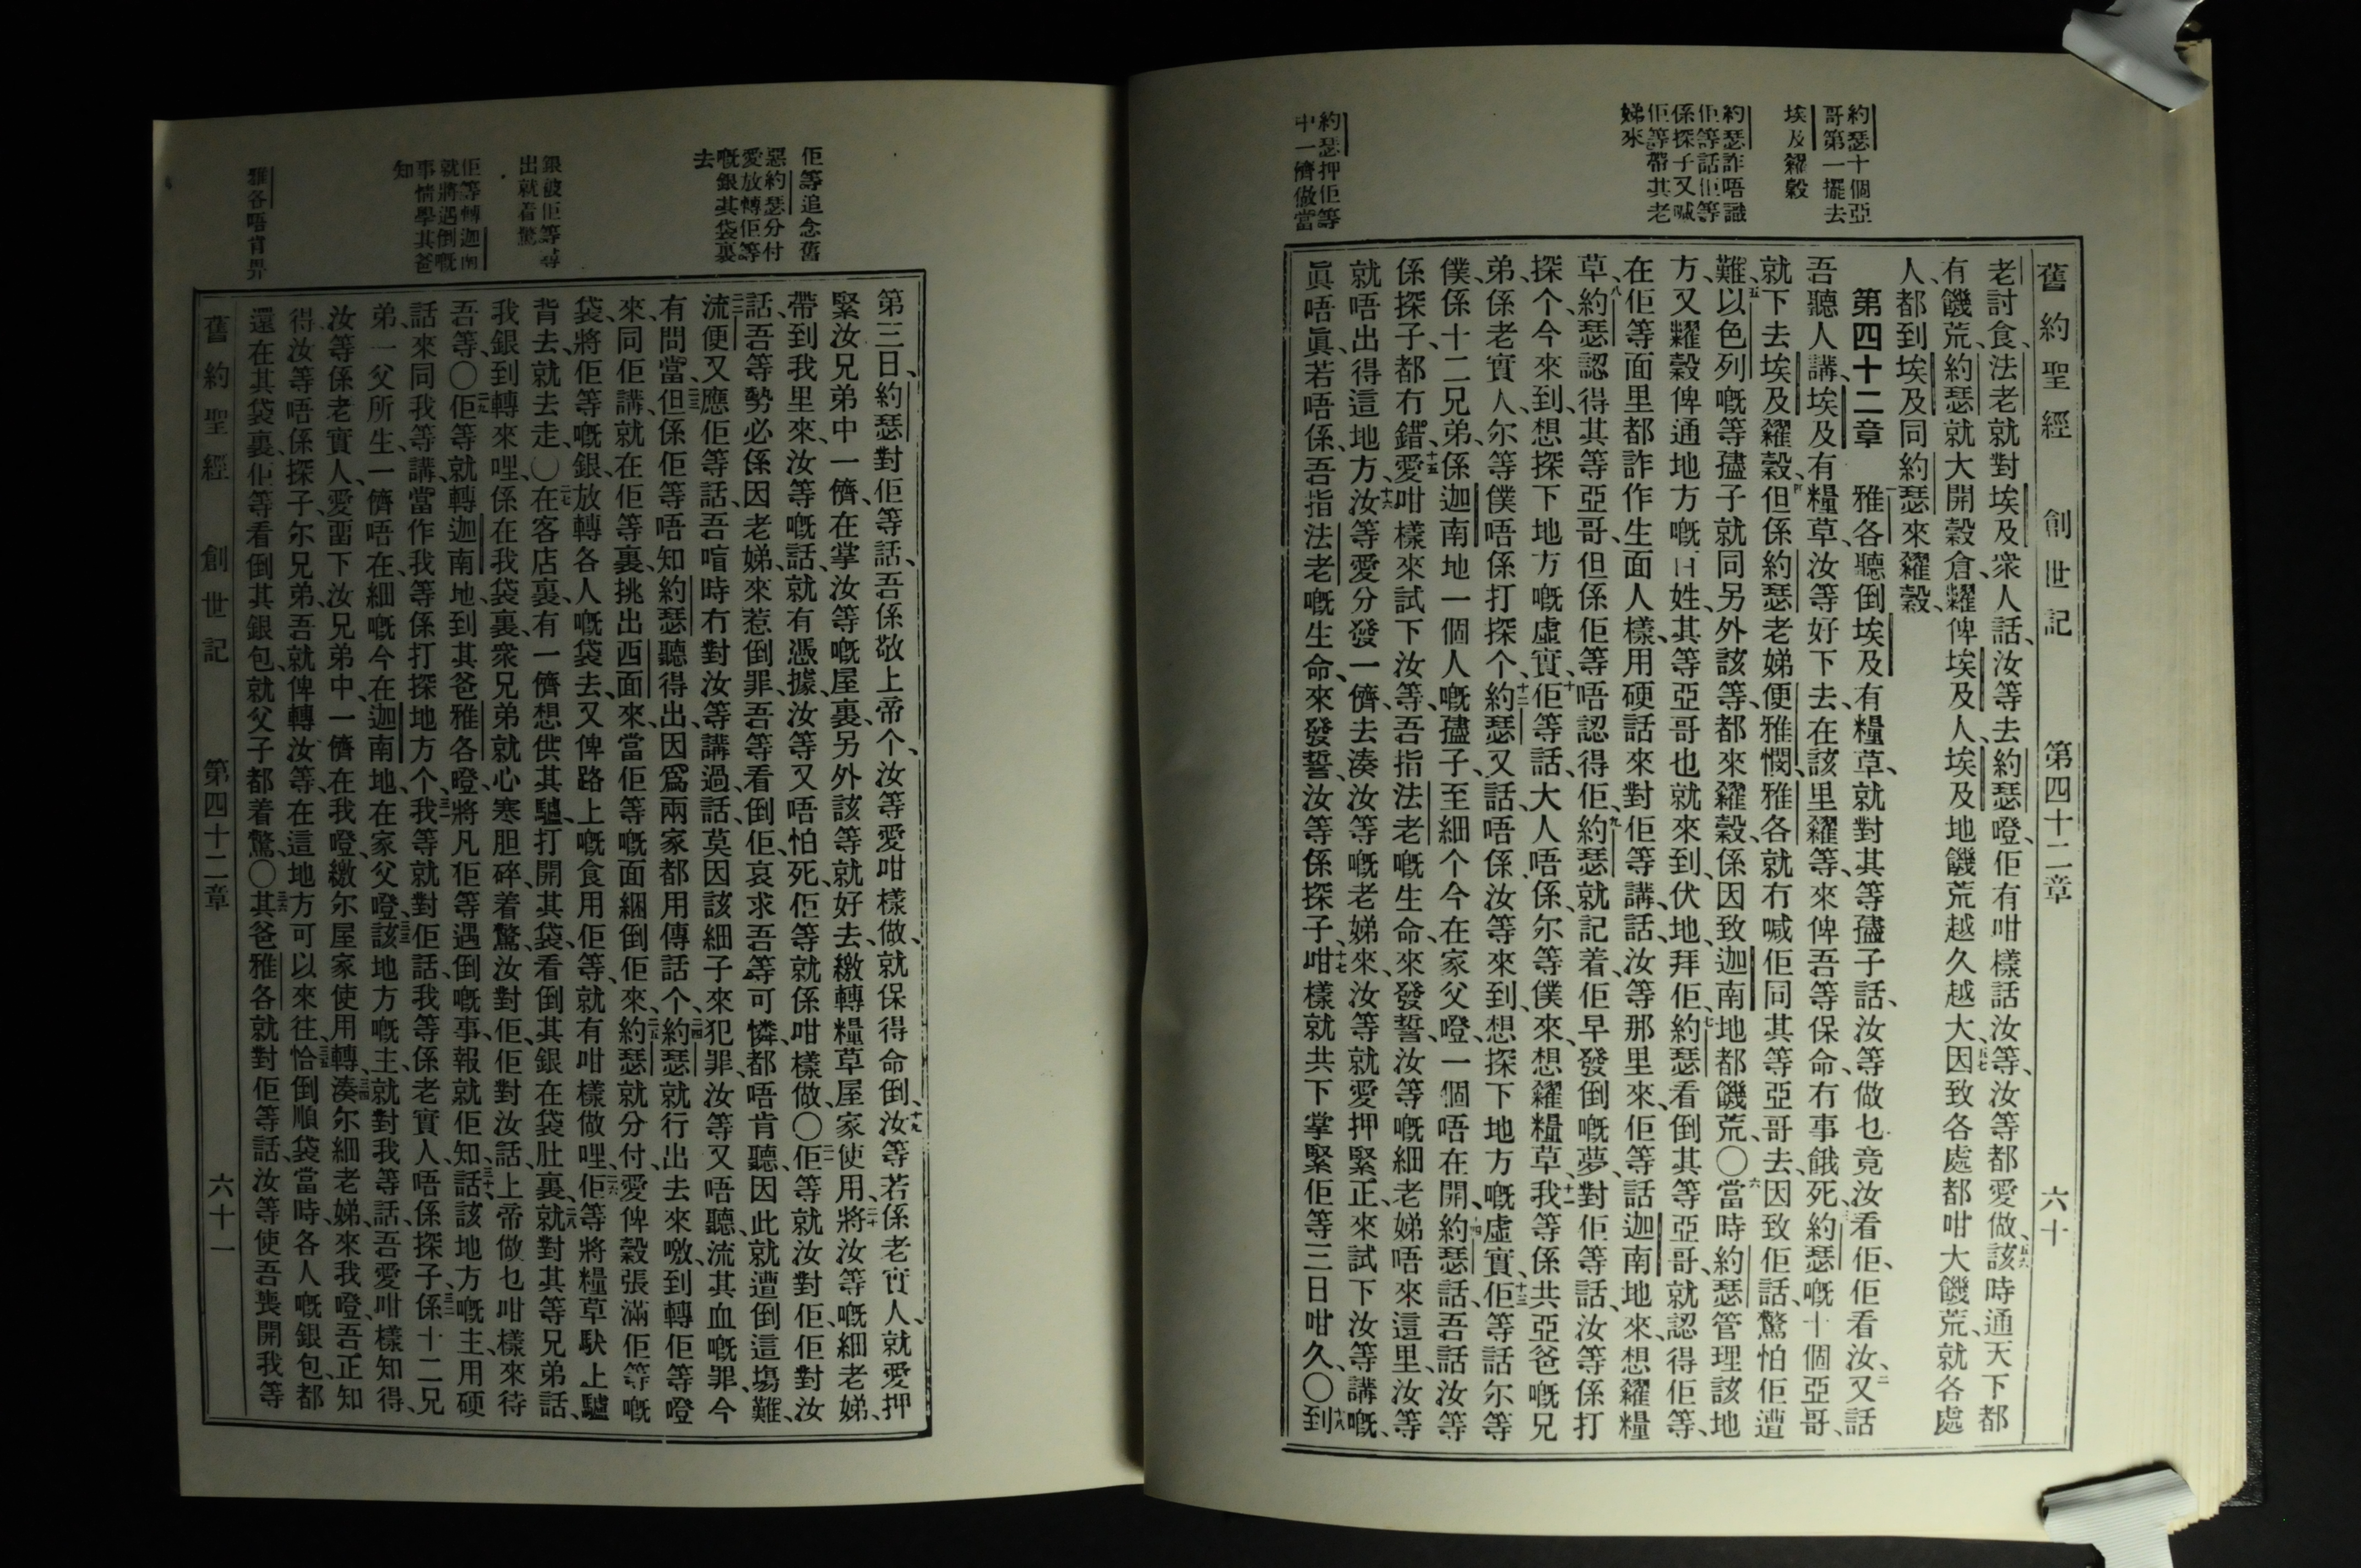 約瑟十個亞
哥第一擺去
埃及糴穀
約瑟詐唔識
佢等話佢等
係探子又喊
佢等帶其老
娣來
約瑟押佢等
中一儕做當
舊約聖經 創世記 第四十二章 六十
老討食、法老就對埃及衆人話、汝等去約瑟噔、佢有咁樣話汝等、汝等都愛做、五六該時通天下都
有饑荒、約瑟就大開穀倉、糶俾埃及人、埃及地饑荒越久越大、五七因致各處都咁大饑荒、就各處
人、都到埃及同約瑟來糴穀、
第四十二章 一雅各聽倒埃及有糧草、就對其等孻子話、汝等做乜竟汝看佢、佢看汝、二又話
吾聽人講、埃及有糧草、汝等好下去、在該里糴等、來俾吾等保命、冇事餓死、三約瑟嘅十個亞哥、
就下去埃及糴穀、四但係約瑟老娣便雅憫、雅各就冇喊佢同其等亞哥去、因致佢話、驚怕佢遭
難、五以色列嘅等孻子就同另外該等、都來糴穀、係因致迦南地都饑荒、〇六當時約瑟管理該地
方、又糶穀俾通地方嘅百姓、其等亞哥也就來到、伏地拜佢、七約瑟看倒其等亞哥、就認得佢等、
在佢等面里都詐作生面人樣、用硬話來對佢等講話、汝等那里來、佢等話、迦南地來、想糴糧
草、八約瑟認得其等亞哥、但係佢等唔認得佢、九約瑟就記着佢早發倒嘅夢、對佢等話、汝等係打
探个、今來到、想探下地方嘅虛實、十佢等話、大人唔係、尔等僕來、想糴糧草、十一我等係共亞爸嘅兄
弟、係老實人、尔等僕唔係打探个、十二約瑟又話、唔係、汝等來到、想探下地方嘅虛實、十三佢等話尔等
僕、係十二兄弟、係迦南地一個人嘅孻子、至細个今在家父噔、一個唔在開、十四約瑟話、吾話汝等
係探子、都冇錯、十五愛咁樣來試下汝等、吾指法老嘅生命、來發誓、汝等嘅細老娣唔來這里、汝等
就唔出得這地方、十六汝等愛分發一儕、去湊汝等嘅老娣來、汝等就愛押緊、正來試下汝等講嘅、
眞唔眞、若唔係、吾指法老嘅生命、來發誓、汝等係探子、十七咁樣就共下掌緊佢等三日咁久、〇十八到
佢等追念舊
惡約瑟分付
愛放轉佢等
嘅銀其袋裏
去
銀被佢等尋
出就着驚
佢等轉迦南
就將遇倒嘅
事情學其爸
知
雅各唔肯畀
第三日、約瑟對佢等話、吾係敬上帝个、汝等愛咁樣做、就保得命倒、十九汝等若係老實人、就愛押
緊汝兄弟中一儕、在掌汝等嘅屋裏、另外該等就好去、繳轉糧草屋家使用、二十將汝等嘅細老娣、
帶到我里來、汝等嘅話、就有憑據、汝等又唔怕死、佢等就係咁樣做、〇二一佢等就汝對佢、佢對汝
話、吾等勢必係因老娣、來惹倒罪、吾等看倒佢、哀求吾等可憐、都唔肯聽、因此就遭倒這塲難、
二二流便又應佢等話、吾喧時冇對汝等講過、話、莫因該細子來犯罪、汝等又唔聽、流其血嘅罪、今
有問當、二三但係佢等唔知約瑟聽得出、因爲兩家都用傳話个、二四約瑟就行出去來噭、到轉佢等噔
來、同佢講、就在佢等裏、挑出西面來、當佢等嘅面綑倒佢來、二五約瑟就分付、愛俾穀張滿佢等嘅
袋、將佢等嘅銀、放轉各人嘅袋去、又俾路上嘅食用佢等、就有咁樣做哩、二六佢等將糧草馱上驢
背去、就去走、〇二七在客店裏、有一儕想供其驢、打開其袋、看倒其銀在袋肚裏、二八就對其等兄弟話、
我銀到轉來哩、係在我袋裏、衆兄弟就心寒胆碎、着驚、汝對佢、佢對汝話、上帝做乜咁樣來待
吾等、〇二九佢等就轉迦南地、到其爸雅各噔、將凡佢等遇倒嘅事、報就佢知、三十話、該地方嘅主、用硬
話來同我等講、當作我等係打探地方个、三一我等就對佢話、我等係老實人、唔係探子、三二係十二兄
弟、一父所生、一儕唔在、細嘅今在迦南地、在家父噔、三三該地方嘅主、就對我等話、吾愛咁樣知得、
汝等係老實人、愛畱下汝兄弟中、一儕在我噔、繳尔屋家使用轉、三四湊尔細老娣、來我噔、吾正知
得、汝等唔係探子、尔兄弟、吾就俾轉汝等、在這地方可以來往、三五恰倒順袋當時、各人嘅銀包、都
還在其袋裏、佢等看倒其銀包、就父子都着驚、〇三六其爸雅各就對佢等話、汝等使吾喪開我等
舊約聖經 創世記 第四十二章 六十一